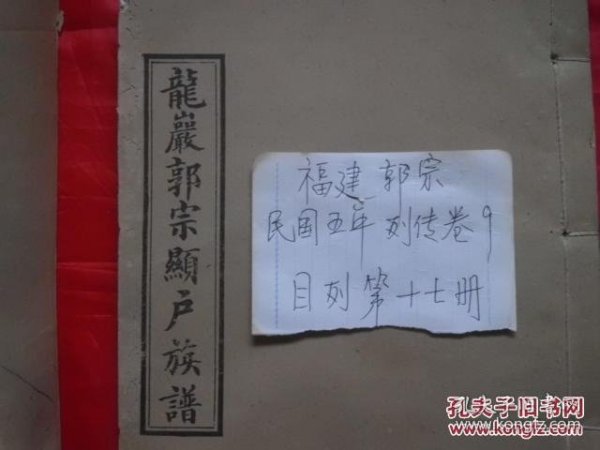 龍巖郭宗顯戶族譜
福建 郭宗
民国五年 列传卷9
目列第十七册
孔夫子旧书网
www.kongfz.com